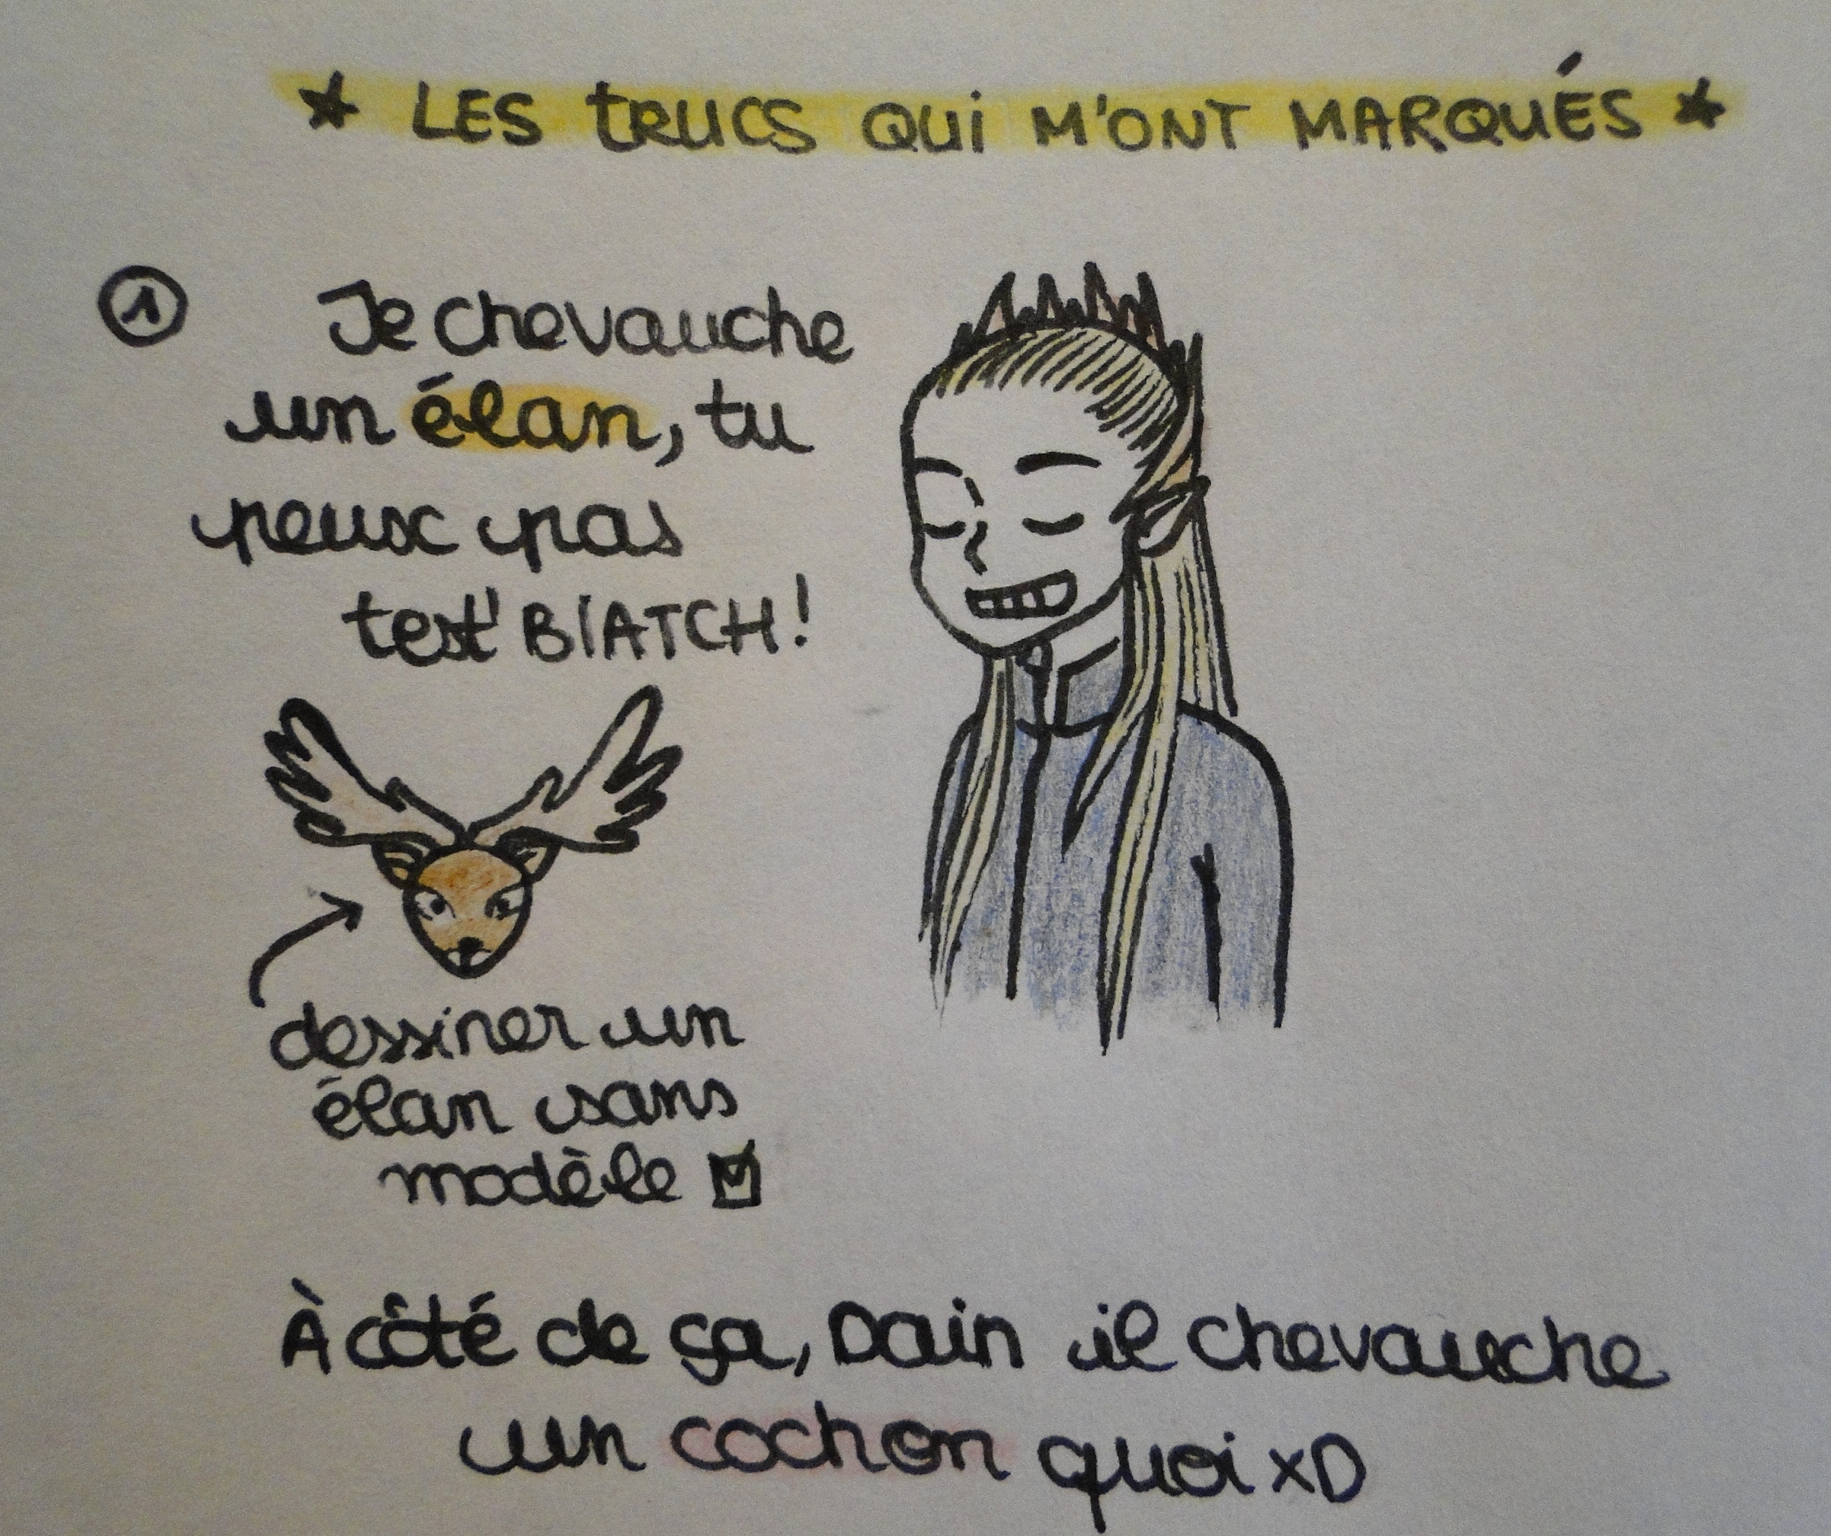 ★ LES TRUCS QUI M'ONT MARQUÉS ★
① Je chevauche
un élan, tu
peux pas
test' BIATCH!
dessiner un
élan sans
modèle ☑
À côté de ça, Dain il chevauche
un cochon quoi xD